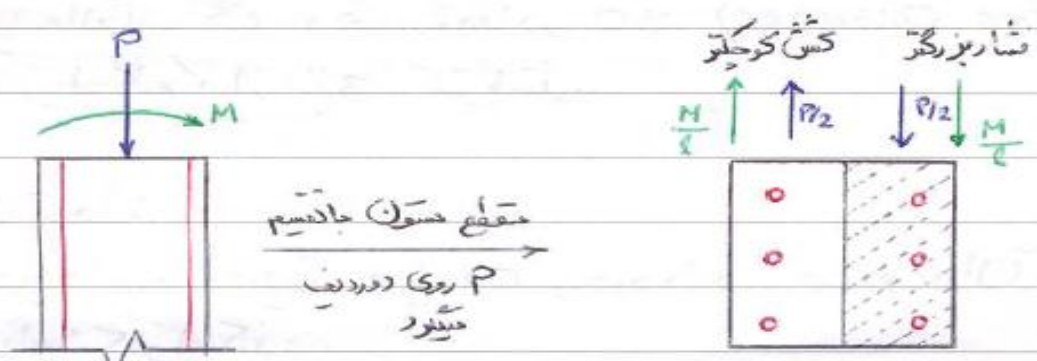 P
M
مقطع ستون با تقسیم
P روی دو ردیف
میشود
کشش کوچکتر
فشار بزرگتر
M/l
P/2
P/2
M/l